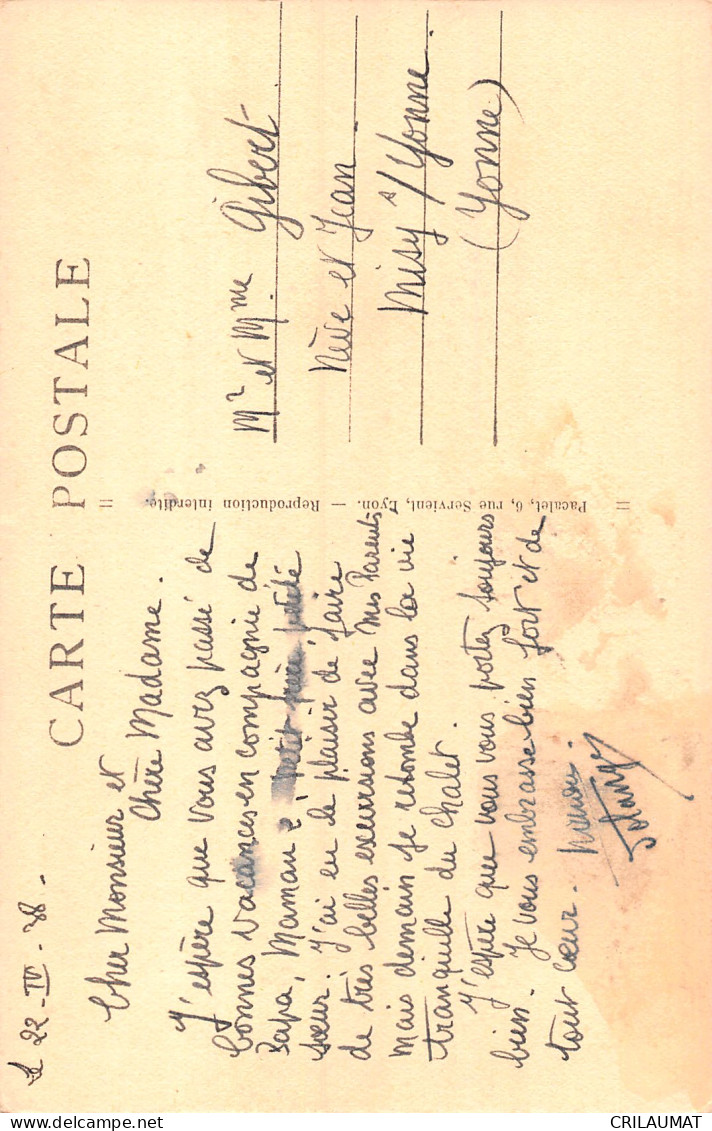 CARTE POSTALE
le 22 - IV - 38 -
Cher Monsieur et
Chère Madame.
J'espère que vous avez passé de
bonnes vacances en compagnie de
Papa, Maman & petit frère petite
sœur. J'ai eu le plaisir de faire
de très belles excursions avec mes Parents,
mais demain je retombe dans la vie
tranquille du chalet.
J'espère que vous vous portez toujours
bien. Je vous embrasse bien fort et de
tout cœur.
Solange
Pacalet, 6, rue Servient, Lyon. — Reproduction interdite.
Mr et Mme Gibert
Nève et Jean
Misy s/ Yonne.
(Yonne)
CRILAUMAT